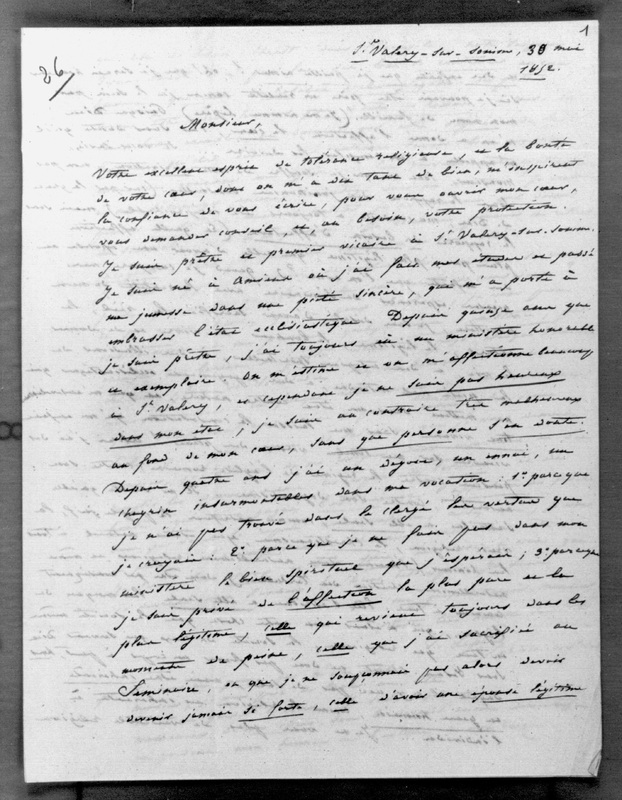 1
86
St Valery-sur-Somme, 30 mai
1852.
Monsieur,
Votre excellent esprit de tolérance religieuse, et la bonté
de votre cœur, dont on m'a dit tant de bien, m'inspirent
la confiance de vous écrire, pour vous ouvrir mon cœur,
vous demander conseil, et, au besoin, votre protection.
Je suis prêtre et premier vicaire à St Valery-sur-Somme.
Je suis né à Amiens où j'ai fait mes études et passé
ma jeunesse dans une piété sincère, qui m'a porté à
embrasser l'état ecclésiastique. Depuis quinze ans que
je suis prêtre, j'ai toujours été un ministre honorable
et exemplaire. On m'estime et on m'affectionne beaucoup
à St Valery, et cependant je ne suis pas heureux
dans mon état ; je suis au contraire très malheureux
au fond de mon cœur, sans que personne s'en doute.
Depuis quatre ans j'ai un dégoût, un ennui, un
chagrin insurmontables dans ma vocation : 1° parceque
je n'ai pas trouvé dans le clergé les vertus que
je croyais : 2° parce que je ne fais pas dans mon
ministère le bien spirituel que j'espérais ; 3° parceque
je suis privé de l'affection la plus pure et la
plus légitime, celle qui revient toujours dans les
moments de peine, celle que j'ai sacrifiée au
Séminaire, et que je ne soupçonnais pas alors devoir
devenir jamais si forte, celle d'avoir une épouse légitime